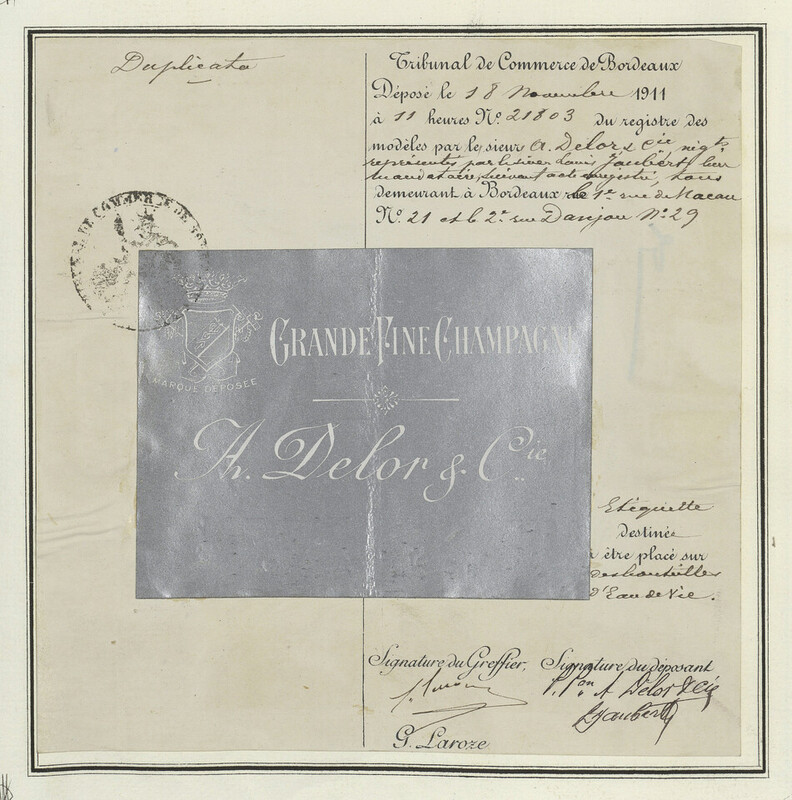 Duplicata
Tribunal de Commerce de Bordeaux
Déposé le 18 Novembre 1911
à 11 heures No. 21803 du registre des
modèles par le sieur A. Delor & Cie négts.
représentés par le sieur Louis Jaubert, leur
mandataire, suivant acte enregistré, tous
demeurant à Bordeaux le 1er rue de Macau
No. 21 et le 2e rue Danjou No. 29
GRANDE FINE CHAMPAGNE
MARQUE DÉPOSÉE
Th. Delor & Cie.
Etiquette
destinée
à être placé sur
des bouteilles
d'Eau de Vie.
Signature du Greffier, Signature du déposant
P. Pon A Delor & Cie
LJaubert
G. Laroze